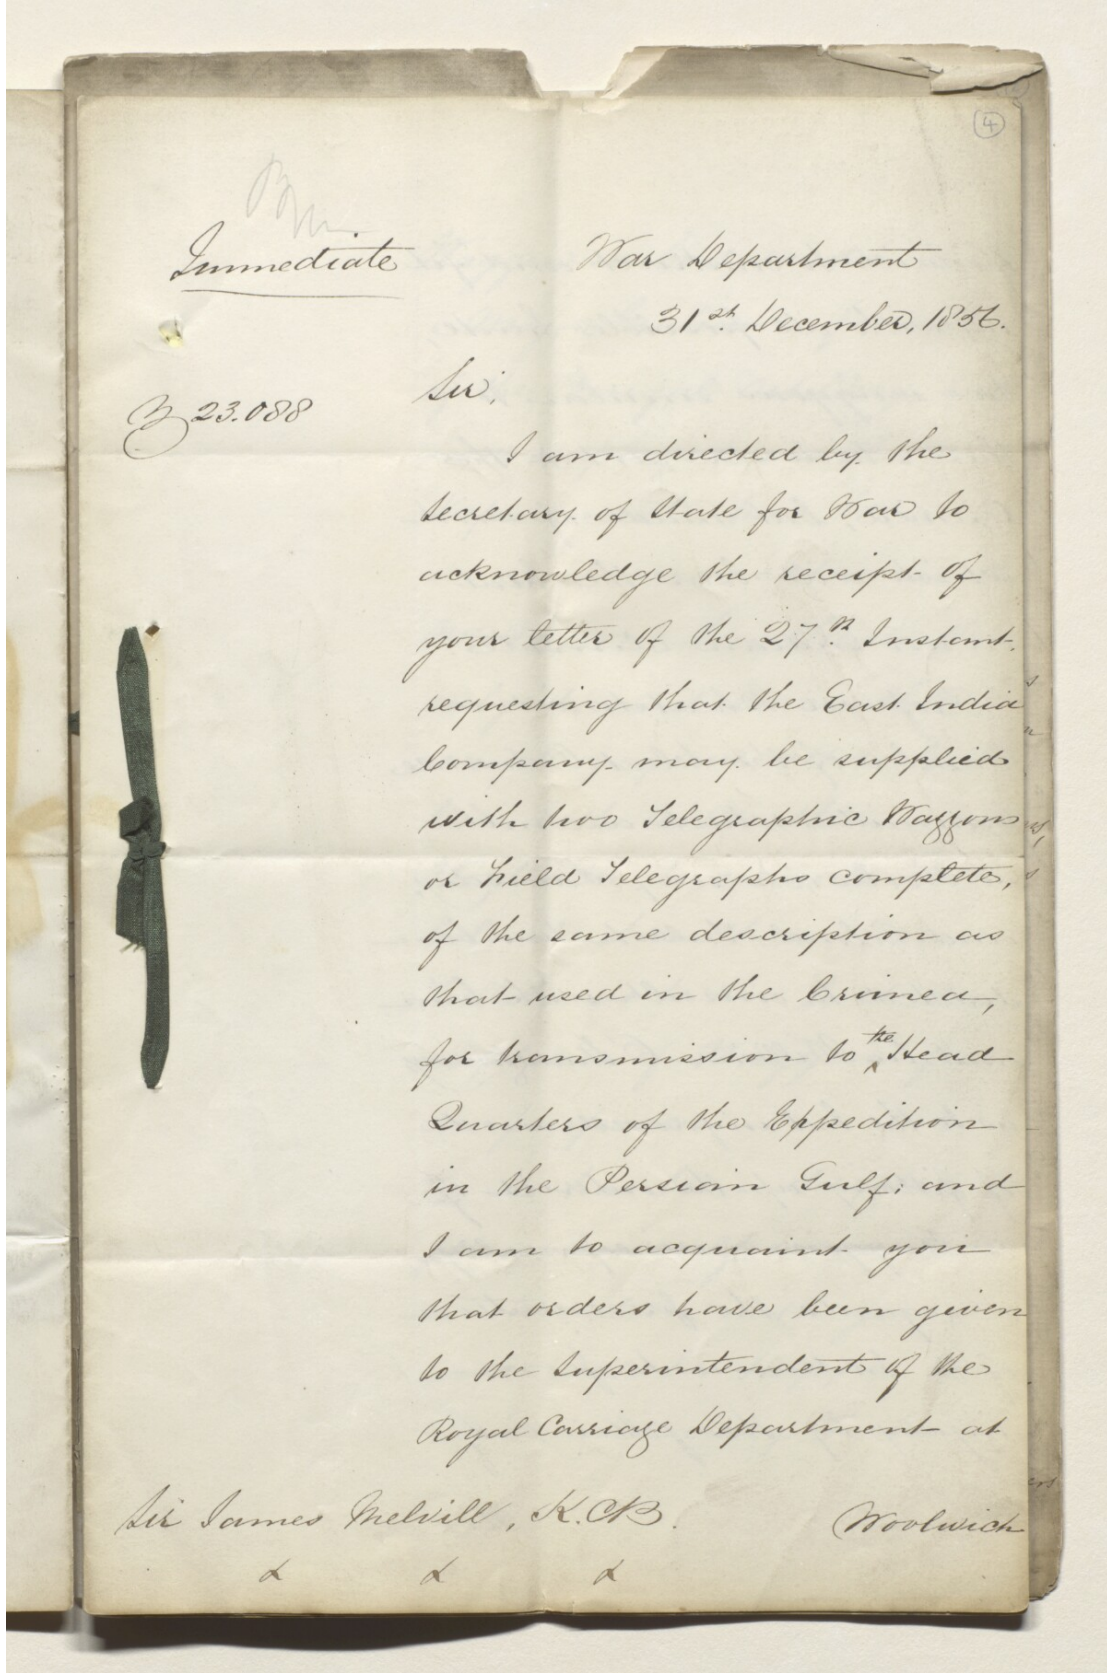 4
Immediate
War Department
31st. December, 1856.
Sir,
23.088
I am directed by the
Secretary of State for War to
acknowledge the receipt of
your letter of the 27th. Instant.
requesting that the East India
Company may be supplied
with two Telegraphic Waggons
or Field Telegraphs complete,
of the same description as
that used in the Crimea,
for transmission to the Head
Quarters of the Expedition
in the Persian Gulf; and
I am to acquaint you
that orders have been given
to the Superintendent of the
Royal Carriage Department at
Sir James Melvill, K.C.B.
Woolwich
&c &c &c